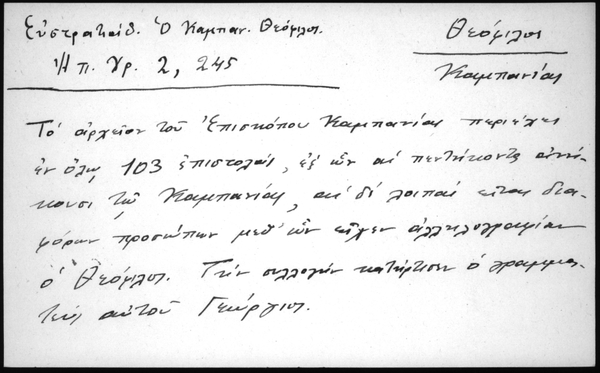 Εὐστρατιάδ. Ὁ Καμπαν. Θεόφιλος.
Ἠπ. Χρ. 2, 245
Θεόφιλος
Καμπανίας
Τὸ ἀρχεῖον τοῦ Ἐπισκόπου Καμπανίας περιέχει
ἐν ὅλῳ 103 ἐπιστολάς, ἐξ ὧν αἱ πεντήκοντα ἀνή-
κουσι τῷ Καμπανίας, αἱ δὲ λοιπαὶ εἶναι δια-
φόρων προσώπων μεθ' ὧν εἶχεν ἀλληλογραφίαν
ὁ Θεόφιλος. Τὴν συλλογὴν κατήρτισεν ὁ γραμμα-
τεὺς αὐτοῦ Γεώργιος.